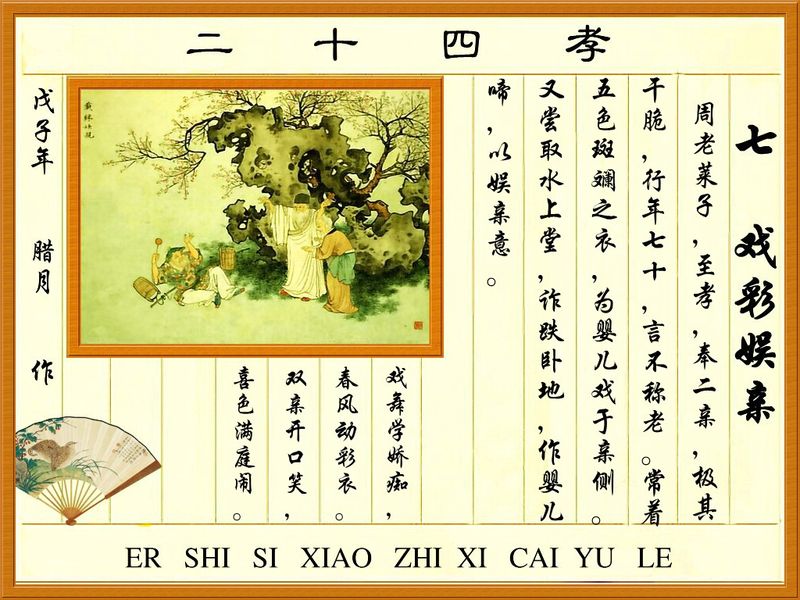 二十四孝
七 戏彩娱亲
周老莱子，至孝，奉二亲，极其
干脆，行年七十，言不称老。常着
五色斑斓之衣，为婴儿戏于亲侧。
又尝取水上堂，诈跌卧地，作婴儿
啼，以娱亲意。
戏舞学娇痴，
春风动彩衣。
双亲开口笑，
喜色满庭闹。
戊子年 腊月 作
ER SHI SI XIAO ZHI XI CAI YU LE